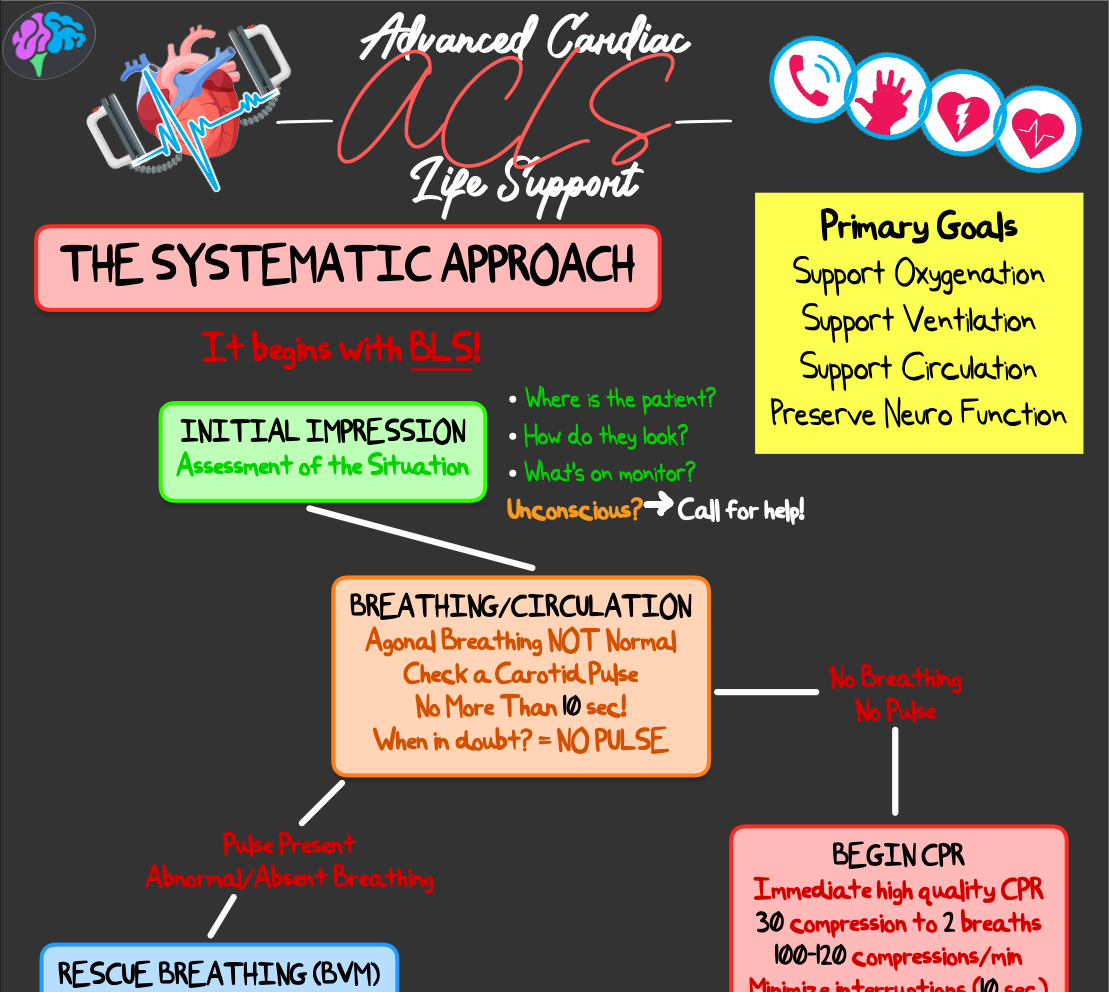 Advanced Cardiac
ACLS
Life Support
THE SYSTEMATIC APPROACH
Primary Goals
Support Oxygenation
Support Ventilation
Support Circulation
Preserve Neuro Function
It begins with BLS!
INITIAL IMPRESSION
Assessment of the Situation
• Where is the patient?
• How do they look?
• What's on monitor?
Unconscious?➔Call for help!
BREATHING/CIRCULATION
Agonal Breathing NOT Normal
Check a Carotid Pulse
No More Than 10 sec!
When in doubt? = NO PULSE
No Breathing
No Pulse
Pulse Present
Abnormal/Absent Breathing
BEGIN CPR
Immediate high quality CPR
30 compression to 2 breaths
100-120 compressions/min
Minimize interruptions (10 sec.)
RESCUE BREATHING (BVM)